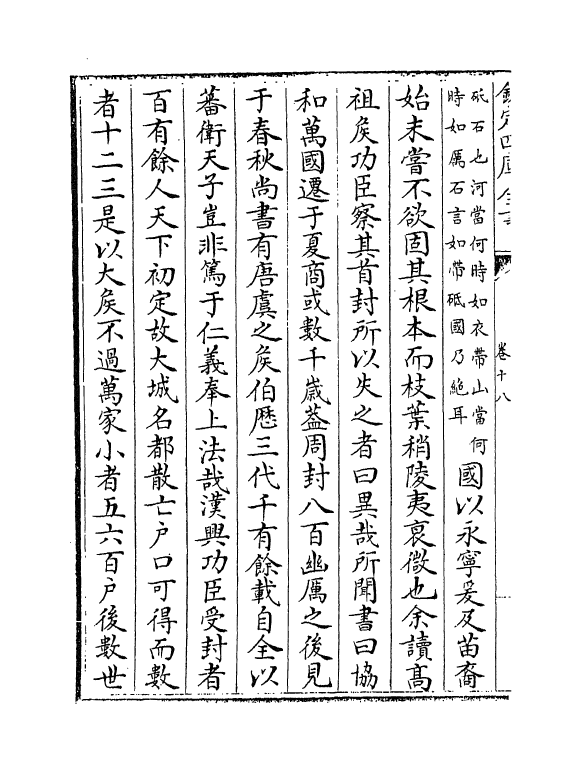 欽定四庫全書
卷十八
砥石也河當何時如衣帶山當何
時如厲石言如帶砥國乃絶耳
國以永寧爰及苗裔
始未嘗不欲固其根本而枝葉稍陵夷衰微也余讀髙
祖矦功臣察其首封所以失之者曰異哉所聞書曰協
和萬國遷于夏商或數千嵗葢周封八百幽厲之後見
于春秋尚書有唐虞之矦伯歷三代千有餘載自全以
蕃衛天子豈非篤于仁義奉上法哉漢興功臣受封者
百有餘人天下初定故大城名都散亡户口可得而數
者十二三是以大矦不過萬家小者五六百户後數世